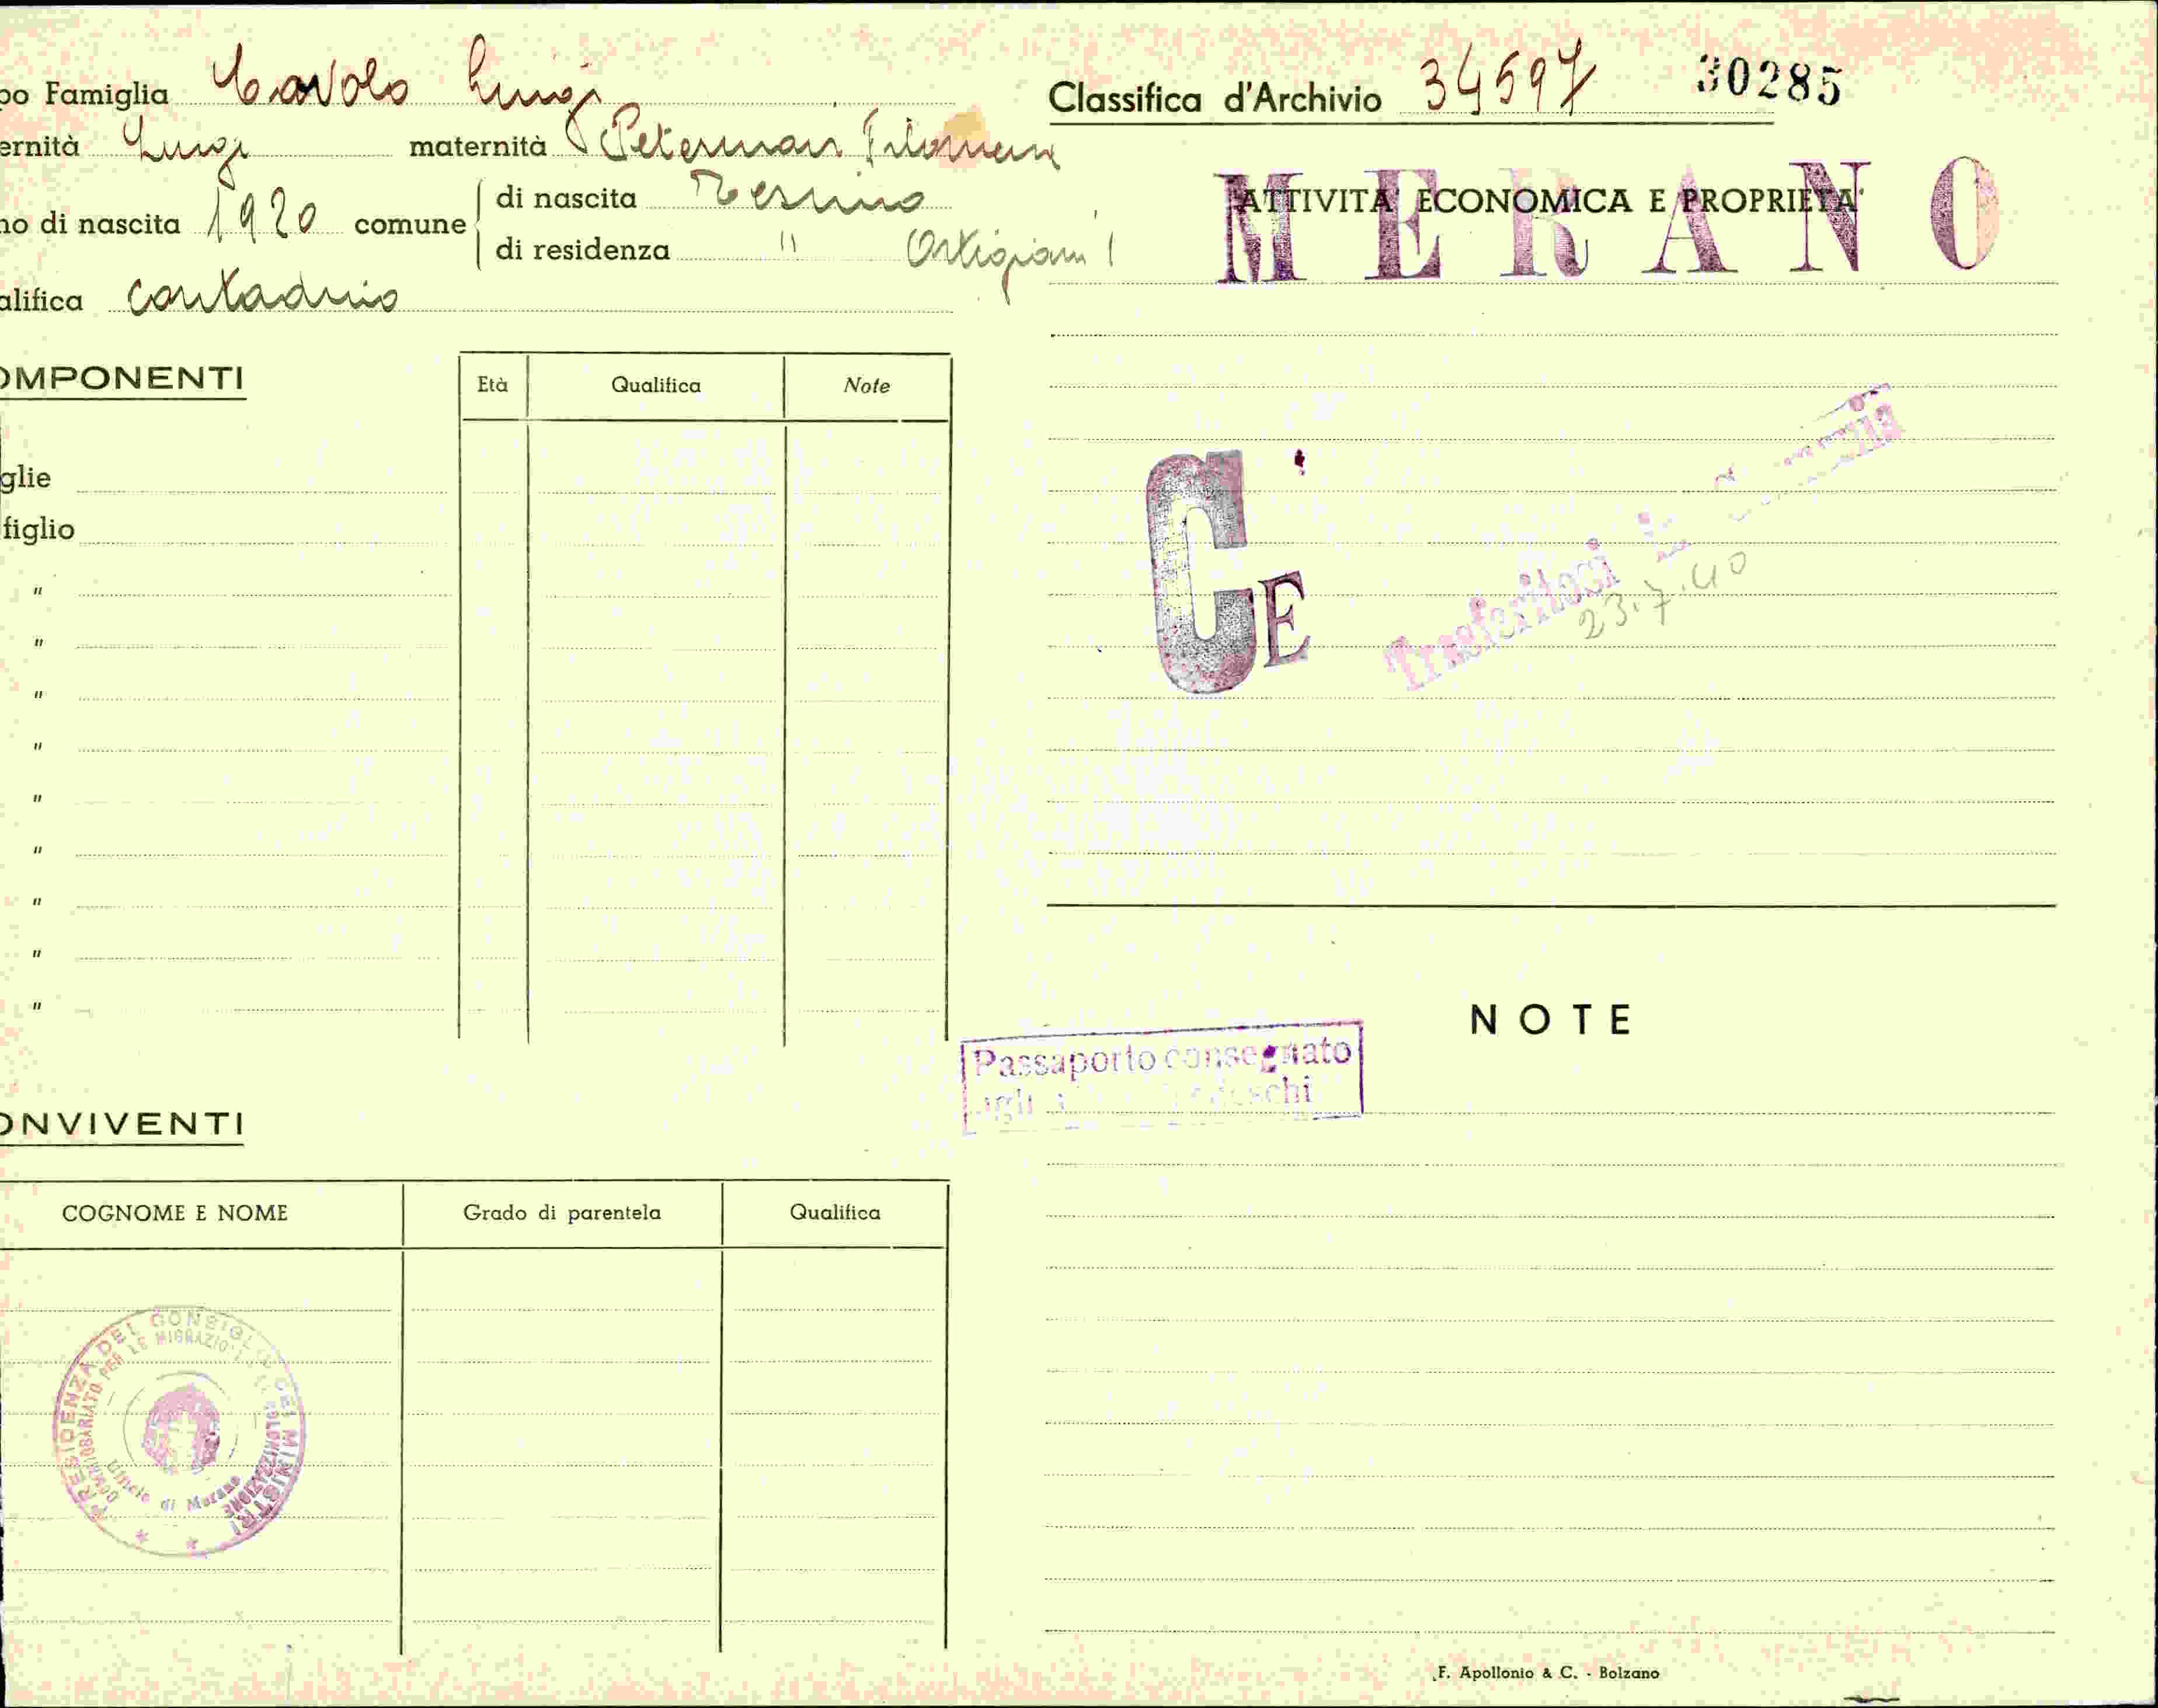 po Famiglia Luigi
ernità Luigi maternità Peterman Filomena
no di nascita 1920 comune di nascita
di residenza " Artigiani 1
alifica contadino
OMPONENTI
Età Qualifica Note
glie
figlio
"
"
"
"
"
"
"
"
"
ONVIVENTI
COGNOME E NOME Grado di parentela Qualifica
PRESIDENZA DEL CONSIGLIO DEI MINISTRI
COMMISSARIATO PER LE MIGRAZIONI COLONIZZAZIONE
Ufficio di Merano
Classifica d'Archivio 34597 30285
MERANO
ATTIVITA' ECONOMICA E PROPRIETA'
CE
Trasferitosi
23.7.40
NOTE
Passaporto consegnato
agli tedeschi
F. Apollonio & C. - Bolzano